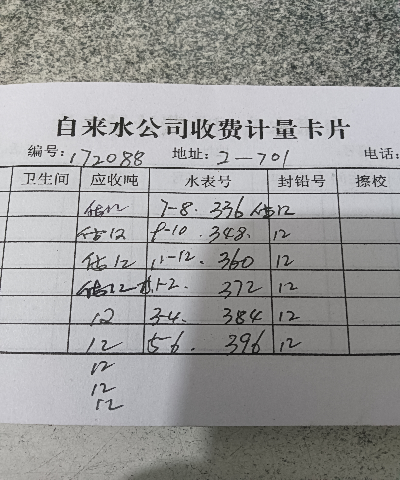 自来水公司收费计量卡片
编号: 172088 地址: 2-701 电话:
卫生间 应收吨 水表号 封铅号 擦校
估12 7-8. 336 估12
估12 9-10. 348. 12
估12 11-12. 360 12
估12 1-2. 372 12
12 3-4. 384 12
12 5-6. 396 12
12
12
12